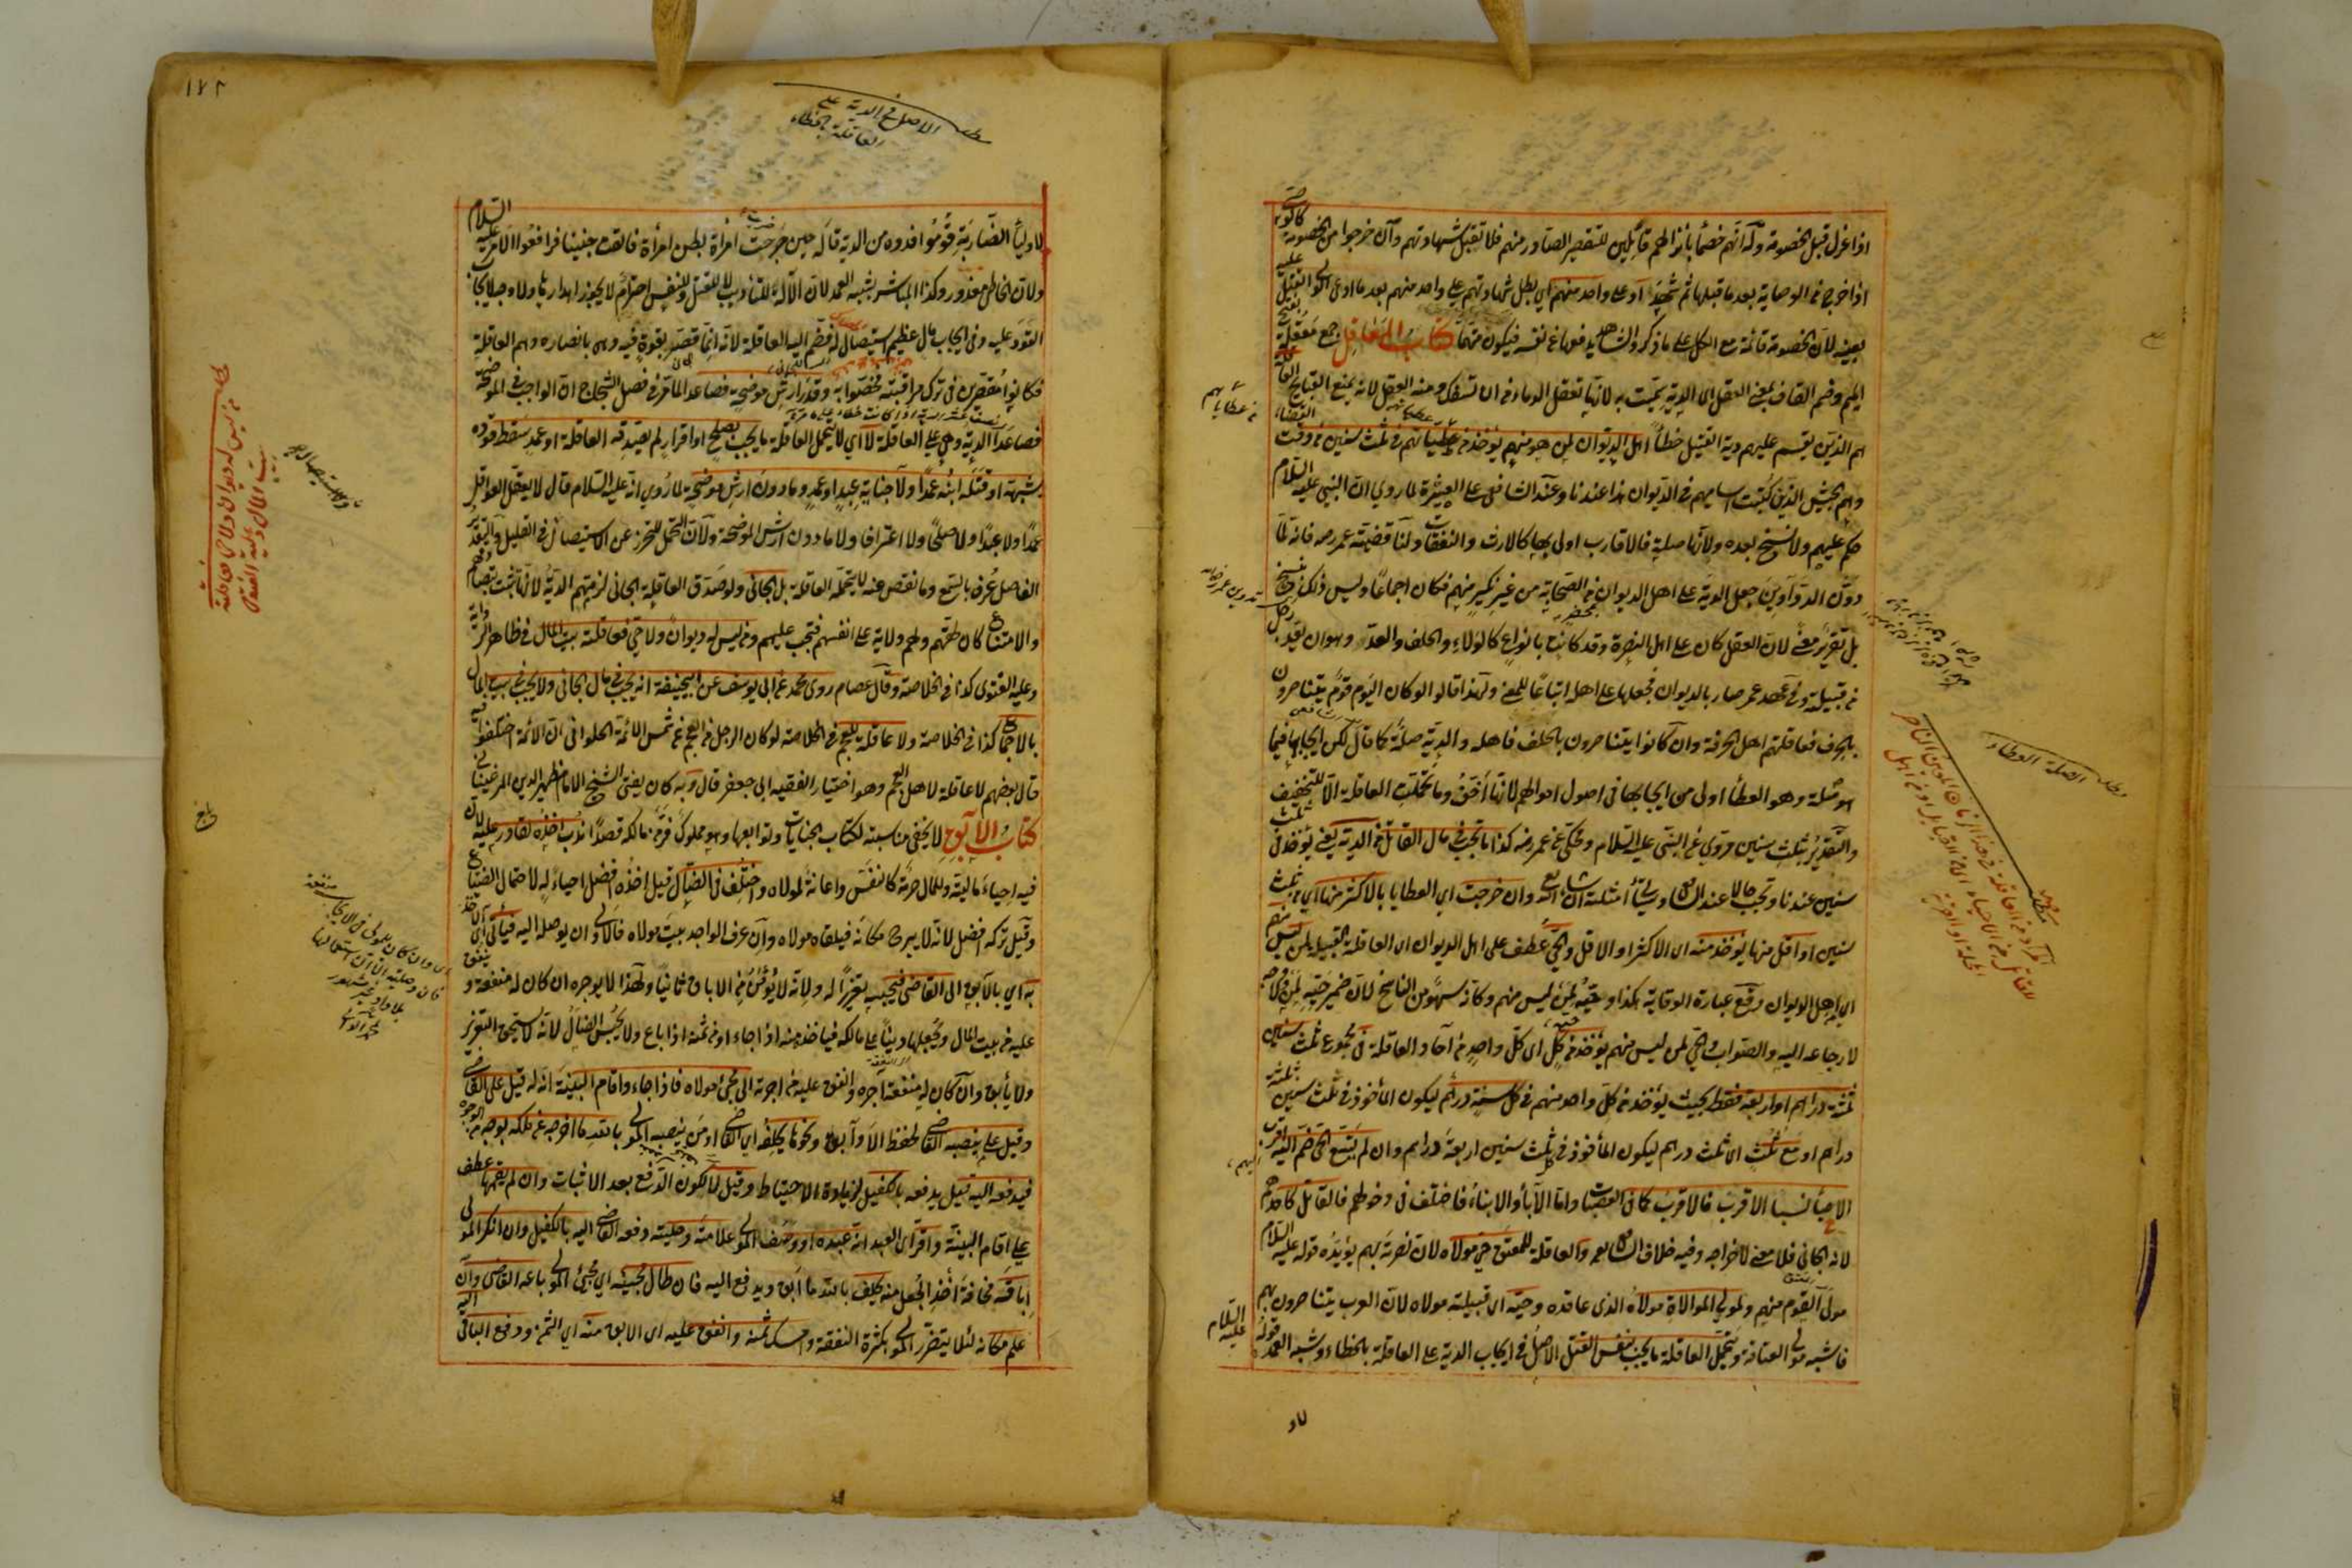 اذا عزل قبل الخصومة وله انهم خصماء بانزالهم قابلين للتقصير الصادر منهم فلا تقبل شهادتهم وان خرجوا من الخصومة كالوصي
اذا خرج من الوصاية بعد ما قبلها ثم شهد او على واحد منهم اي بطل شهادتهم على واحد منهم بعد ما ادعى الولي القتل عليه
بعينه لان الخصومة قائمة مع الكل على ما ذكر والشاهد يدفعها عن نفسه فيكون متهما كتاب المعاقل جمع معقلة بفتح
الميم وضم القاف بمعنى العقل اي الدية سميت به لانها تعقل الدماء من ان تسفك ومنه العقل لانه يمنع القبايح العاقلة
هم الذين يقسم عليهم دية القتيل خطأ اهل الديوان لمن هو منهم يؤخذ من عطياتهم في ثلث سنين من وقت القضاء
وهم الجيش الذين كتبت اساميهم في الديوان هذا عندنا وعند الشافعي على العشيرة لما روي ان النبي عليه السلام
حكم عليهم ولا نسخ بعده ولانها صلة فالاقارب اولى بها كالارث والنفقات ولنا قضية عمر رضه فانه لما
دون الدواوين جعل الدية على اهل الديوان من الصحابة من غير نكير منهم فكان اجماعا وليس ذلك نسخ
بل تقرير معنى لان العقل كان على اهل النصرة وقد كانت بانواع كالولاء والحلف والعد وهو ان يعد رجل
من قبيلة وفي عهد عمر صار بالديوان فجعلها على اهله اتباعا للمعنى ولهذا قالوا لو كان اليوم قوم يتناصرون
بالحرف فعاقلتهم اهل الحرفة وان كانوا يتناصرون بالحلف فاهله والدية صلة كما قال لكن ايجابها فيما
هو صلة وهو العطاء اولى من ايجابها في اصول اموالهم لانها اخف وما تحملت العاقلة الا للتخفيف
والتقدير بثلث سنين مروي عن النبي عليه السلام ومحكي عن عمر رضه كذا ما تجب في مال القاتل من الدية يعني يؤخذ في ثلث
سنين عندنا وتجب حالا عند الشافعي وسيأتي امثلته ان شاء الله تع وان خرجت اي العطايا بالاكثر منها اي من ثلث
سنين او اقل منها يؤخذ منه اي الاكثر او الاقل والحي عطف على اهل الديوان اي العاقلة القبيلة لمن ليس منهم
اي اهل الديوان وقع عبارة الوقاية هكذا وحيه لمن ليس منهم وكانه سهو من الناسخ لان ضمير حيه لمن ولا صحة
لارجاعه اليه والصواب والحي لمن ليس منهم يؤخذ من كل اي كل واحد من آحاد العاقلة في مجموع ثلث سنين
ثلثة دراهم او اربعة فقط بحيث يؤخذ من كل واحد منهم في كل سنة درهم ليكون المأخوذ في ثلث سنين ثلثة
دراهم او مع ثلث اي ثلث درهم ليكون المأخوذ في ثلث سنين اربعة دراهم وان لم يتسع الحي ضم اليه اقرب
الاحياء نسبا الاقرب فالاقرب كما في العصبات واما الآباء والابناء فاختلف في دخولهم فالقاتل كاحدهم
لانه الجاني فلا معنى لاخراجه وفيه خلاف الشافعي والعاقلة للمعتق حي مولاه لان نصرته بهم يؤيده قوله عليه السلام
مولى القوم منهم ولمولى الموالاة مولاه الذي عاقده وحيه اي قبيلة مولاه لان العرب يتناصرون بهم
فاشبه مولى العتاقة وتتحمل العاقلة ما يجب بنفس القتل الاصل في ايجاب الدية على العاقلة بالخطاء وشبه العمد قوله عليه السلام
لاو
من عطاياهم
مطلب الصلة العطاء
١٧٢
مطلب الاصل في الدية على
العاقلة بالخطاء
لاولياء الضاربة قوموا فدوه من الدية قاله حين ضربت امرأة بطن امرأة فالقت جنينا فرافعوا الامر عليه السلام
ولان الخاطئ معذور وكذا المباشر بشبه العمد لان الآلة للتأديب لا للقتل وللنفس احترام لا يجوز اهدارها ولا وجه لايجاب
القود عليه وفي ايجاب مال عظيم استيصال له فضم اليه العاقلة لانه انما قصر بقوة فيه وهي بانصاره وهم العاقلة
فكانوا مقصرين في ترك مراقبته فخصوا به وقدر ارش موضحة فصاعدا لما مر في فصل الشجاج ان الواجب في الموضحة
فصاعدا الدية وهي على العاقلة لا اي لا يتحمل العاقلة ما يجب بصلح او اقرار لم يصدقه العاقلة او عمد سقط قوده
بشبهة او قتله ابنه عمدا ولا جناية عبد او عمد وما دون ارش موضحة لما روي انه عليه السلام قال لا يعقل العواقل
عمدا ولا عبدا ولا صلحا ولا اعترافا ولا ما دون ارش الموضحة ولان التحمل للتحرز عن الاستيصال في القليل والتقدير
الفاصل عرف بالسمع وما نقص عنه لا يتحمله العاقلة بل الجاني ولو صدق العاقلة الجاني لزمتهم الدية لانها تثبت بتصادقهم
والامتناع كان لحقهم ولهم ولاية على انفسهم فتجب عليهم ومن ليس له ديوان ولا حي فعاقلته بيت المال في ظاهر الرواية
وعليه الفتوى كذا في الخلاصة وقال عصام روى محمد عن ابي يوسف عن ابي حنيفة انه يجب في مال الجاني ولا يجب في بيت المال
بالاجماع كذا في الخلاصة ولا عاقلة للعجم في الخلاصة لو كان الرجل من العجم عن شمس الائمة الحلواني ان الائمة اختلفوا فيه
قال بعضهم لا عاقلة لاهل العجم وهو اختيار الفقيه ابي جعفر قال وبه كان يفتي الشيخ الامام ظهير الدين المرغيناني
كتاب الآبق لا يخفى مناسبته لكتاب الجنايات وتوابعها وهو مملوك فر من مالكه قصدا ندب اخذه لقادر عليه لان
فيه احياء مالية وللمال حرمة كالنفس واعانة لمولاه واختلف في الضال قيل اخذه افضل احياء له لاحتمال الضياع
وقيل تركه افضل لانه لا يبرح مكانه فيلقاه مولاه وان عرف الواجد بيت مولاه فالاولى ان يوصله اليه فيأتي اي الآخذ
به اي بالآبق الى القاضي فيحبسه تعزيرا له ولانه لا يؤمن من الاباق ثانيا ولهذا لا يوجره ان كان له منفعة وينفق
عليه من بيت المال ويجعلها دينا على مالكه فيأخذ منه اذا جاء او من ثمنه اذا باع ولا يحبس الضال لانه لا يستحق التعزير
ولا يأبق وان كان له منفعة آجره وانفق عليه من اجرته الى مجيء مولاه فاذا جاء واقام البينة انه له قيل على القاضي
وقيل على من ينصبه القاضي لحفظ الاوابق ونحوها يحلفه اي القاضي او من ينصبه المولى بالله ما اخرجه عن ملكه بوجه من الوجوه
فيدفعه اليه قيل يدفعه بالكفيل لزيادة الاحتياط وقيل لا لكون الدفع بعد الاثبات وان لم يقمها عطف
على اقام البينة واقر اي العبد انه عبده او وصف المولى علامته وحليته دفعه القاضي اليه بالكفيل وان انكر المولى
اباقه مخافة اخذ الجعل منه يحلف بالله ما ابق ويدفع اليه فان طال مجيئه اي مجيء المولى باعه القاضي وان
علم مكانه لئلا يتضرر المولى بكثرة النفقة وامسك ثمنه وانفق عليه اي الآبق منه اي الثمن ودفع الباقي اليه